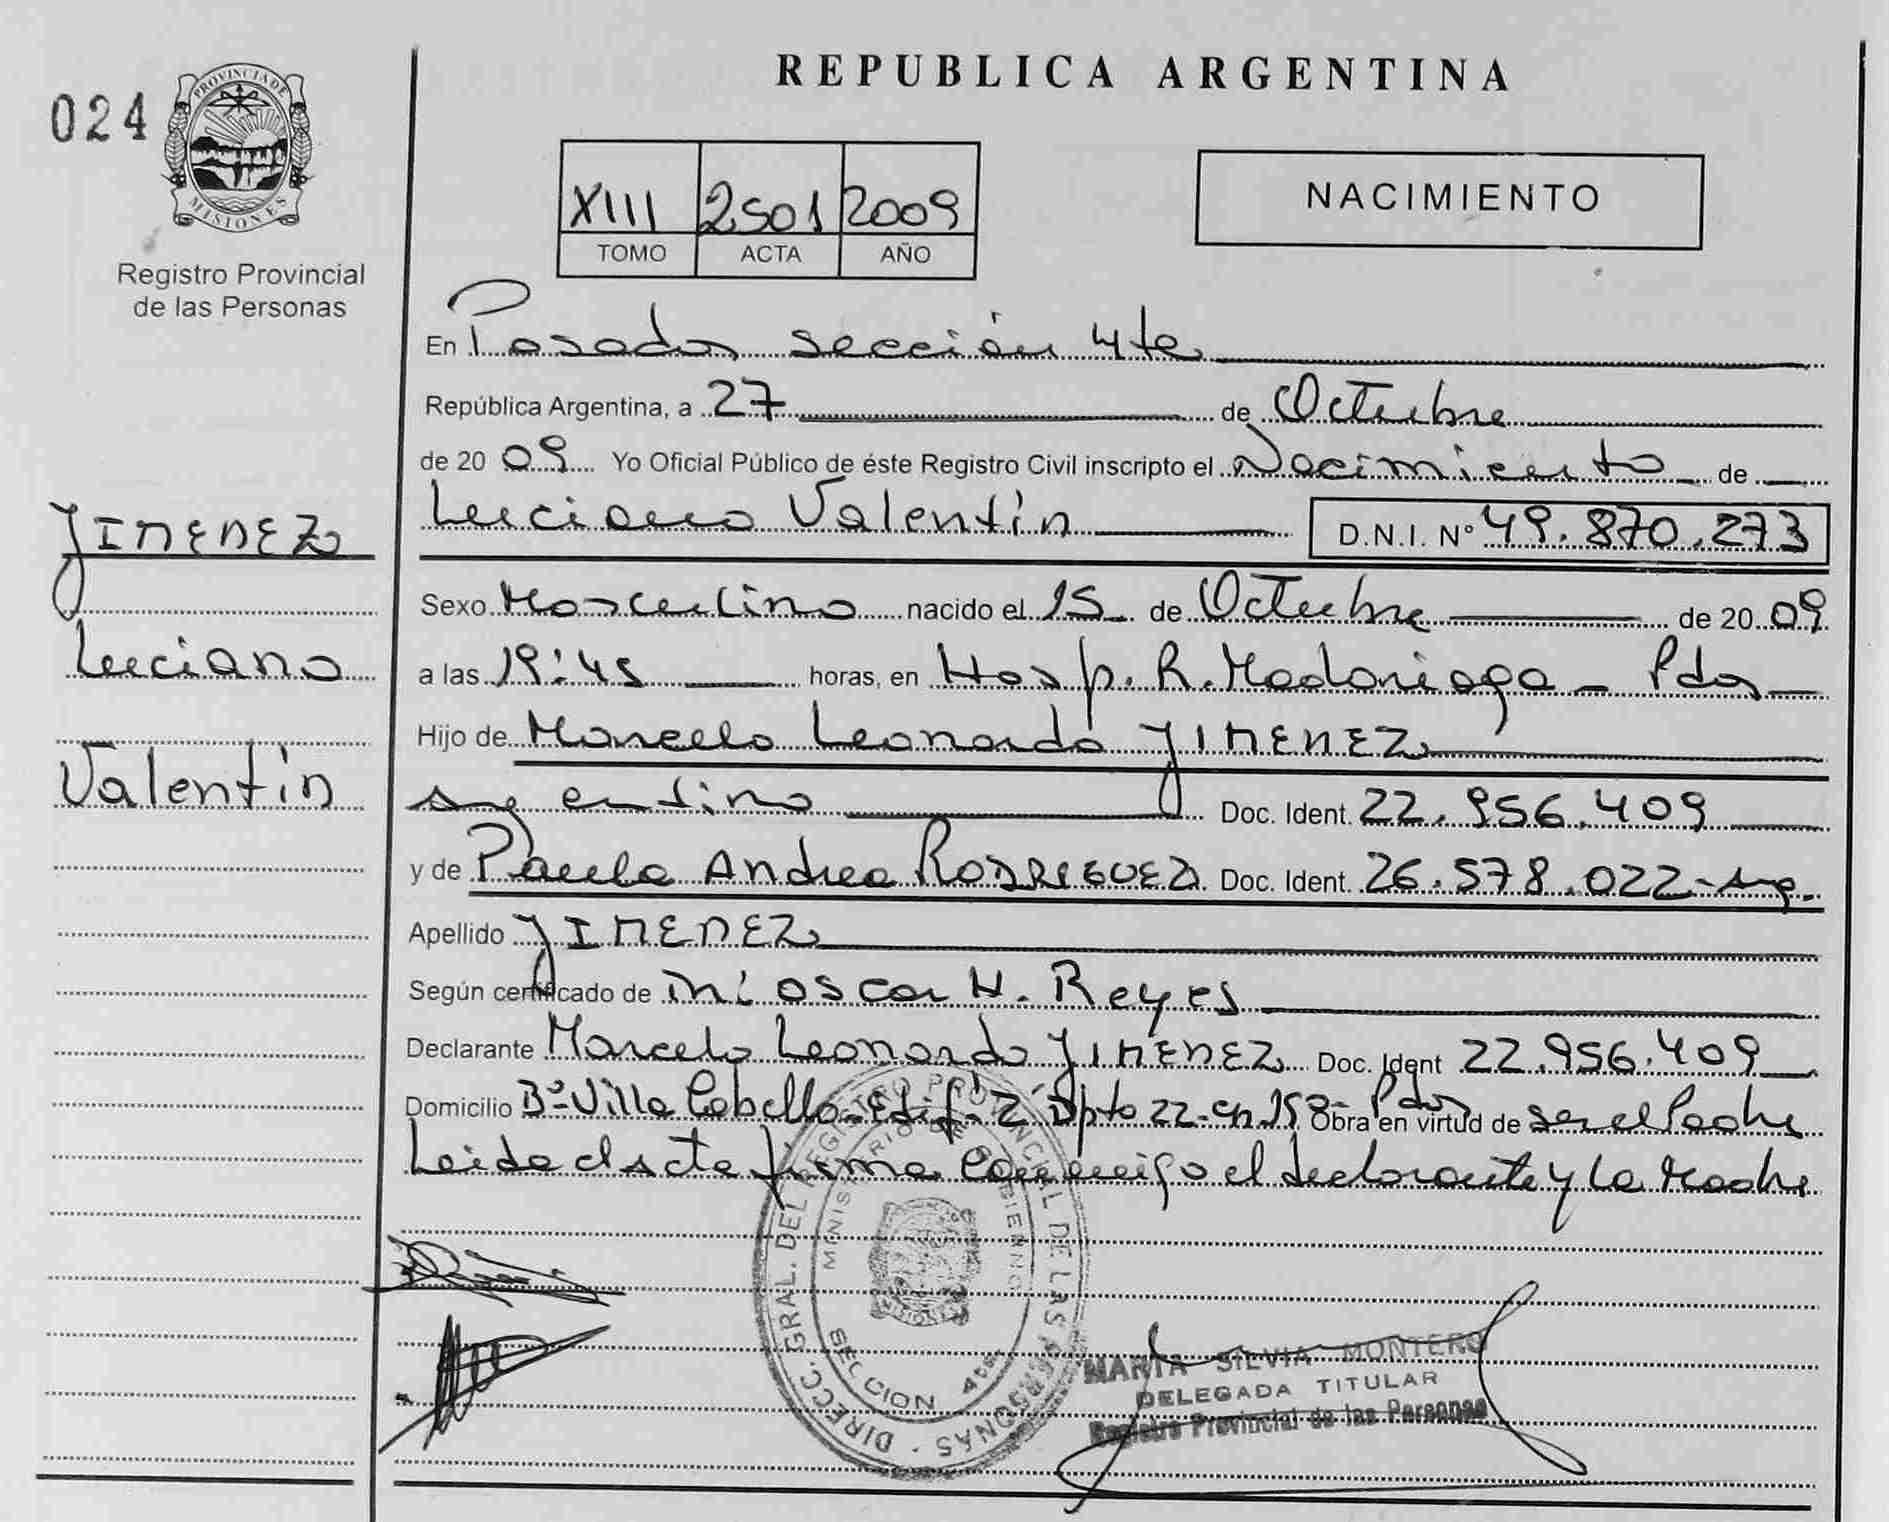 REPUBLICA ARGENTINA
024
PROVINCIA DE
MISIONES
Registro Provincial
de las Personas
XIII 2501 2009
TOMO ACTA AÑO
NACIMIENTO
En Posadas sección 4ta
República Argentina, a 27 de Octubre
de 2009 Yo Oficial Público de éste Registro Civil inscripto el Nacimiento de
Luciano Valentín D.N.I. Nº 49.870.273
JIMENEZ
Luciano
Valentín
Sexo Masculino nacido el 15 de Octubre de 2009
a las 19:45 horas, en Hosp. R. Madariaga - Pdas
Hijo de Marcelo Leonardo JIMENEZ
argentino Doc. Ident. 22.956.409
y de Paula Andrea RODRIGUEZ Doc. Ident. 26.578.022-arg.
Apellido JIMENEZ
Según certificado de Oscar H. Reyes
Declarante Marcelo Leonardo JIMENEZ Doc. Ident 22.956.409
Domicilio Bº Villa Cabello-Edif-2 Dpto 22-ch 158- Pdas Obra en virtud de ser el Padre
Leida el acta firma conmigo el declarante y la Madre
DIRECC. GRAL. DEL REGISTRO PROVINCIAL DE LAS PERSONAS
MINISTERIO DE GOBIERNO
SECCION 4ta.
MISIONES
MARTA SILVIA MONTERO
DELEGADA TITULAR
Registro Provincial de las Personas